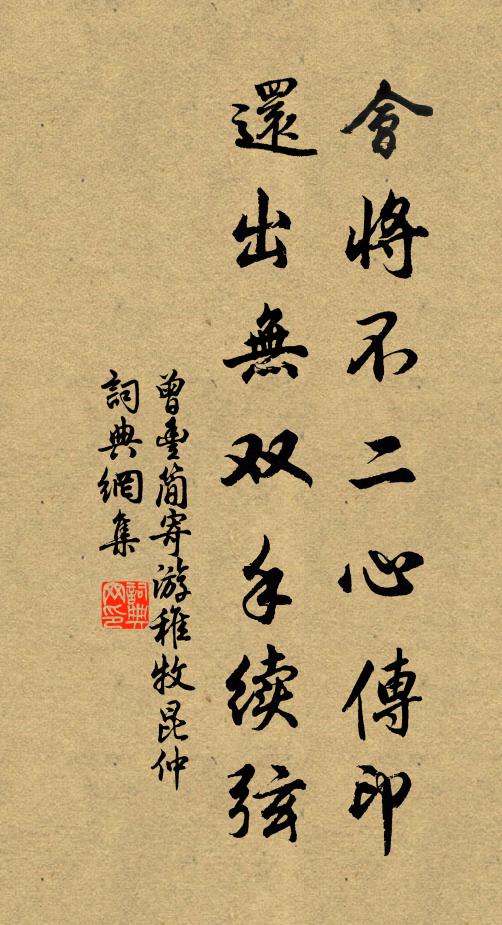 會將不二心傳印
還出無双手續弦
曾豐簡寄游稚牧昆仲
詞典網集
詞典网印